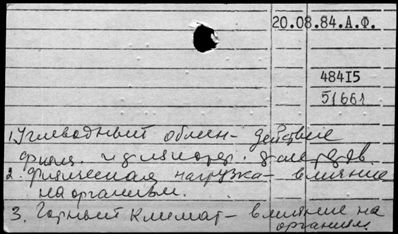 20.08.84.А.Ф.
48415
51661
1. Углеводный обмен - действие
физ. и
2. Физическая нагрузка - влияние
на организм.
3. Горный климат - влияние на
организм